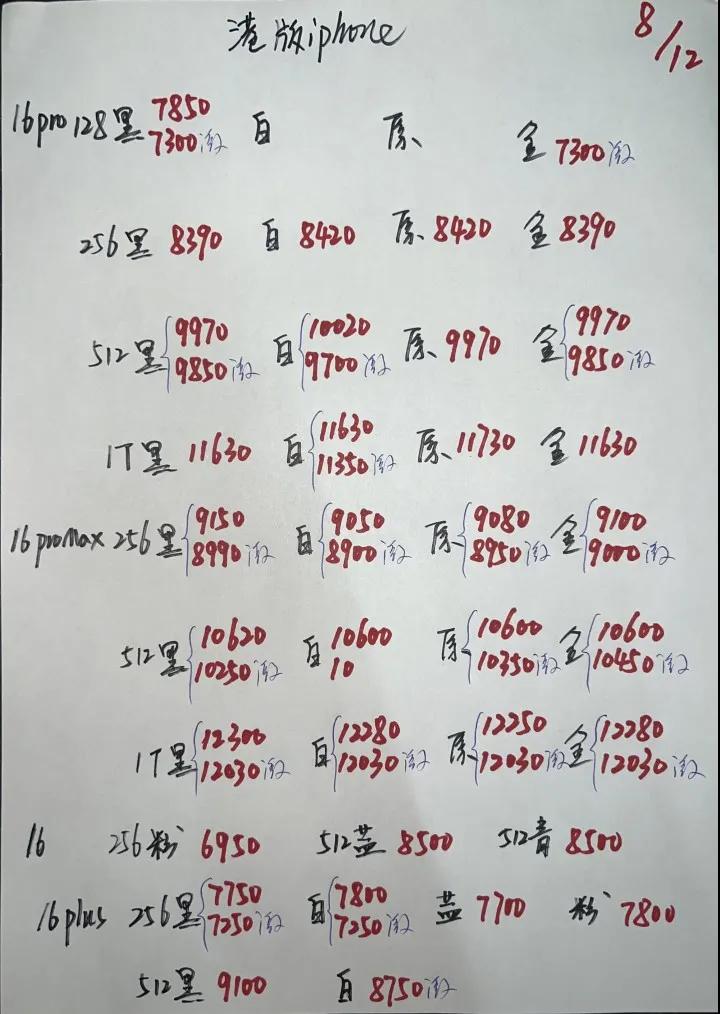 港版iphone
8/12
16pro 128黑 7850 白 原、 金 7300激
7300激
256黑 8390 白 8420 原、8420 金 8390
512黑 9970 白 10020 原、9970 金 9970
9850激 9700激 9850激
1T黑 11630 白 11630 原、11730 金 11630
11350激
16proMax 256黑 9150 白 9050 原 9080 金 9100
8990激 8900激 8950激 9000激
512黑 10620 白 10600 原 10600 金 10600
10250激 10 10350激 10450激
1T黑 12300 白 12280 原 12250 金 12280
12030激 12030激 12030激 12030激
16 256粉 6950 512蓝 8500 512青 8500
16plus 256黑 7750 白 7800 蓝 7700 粉 7800
7250激 7250激
512黑 9100 白 8750激